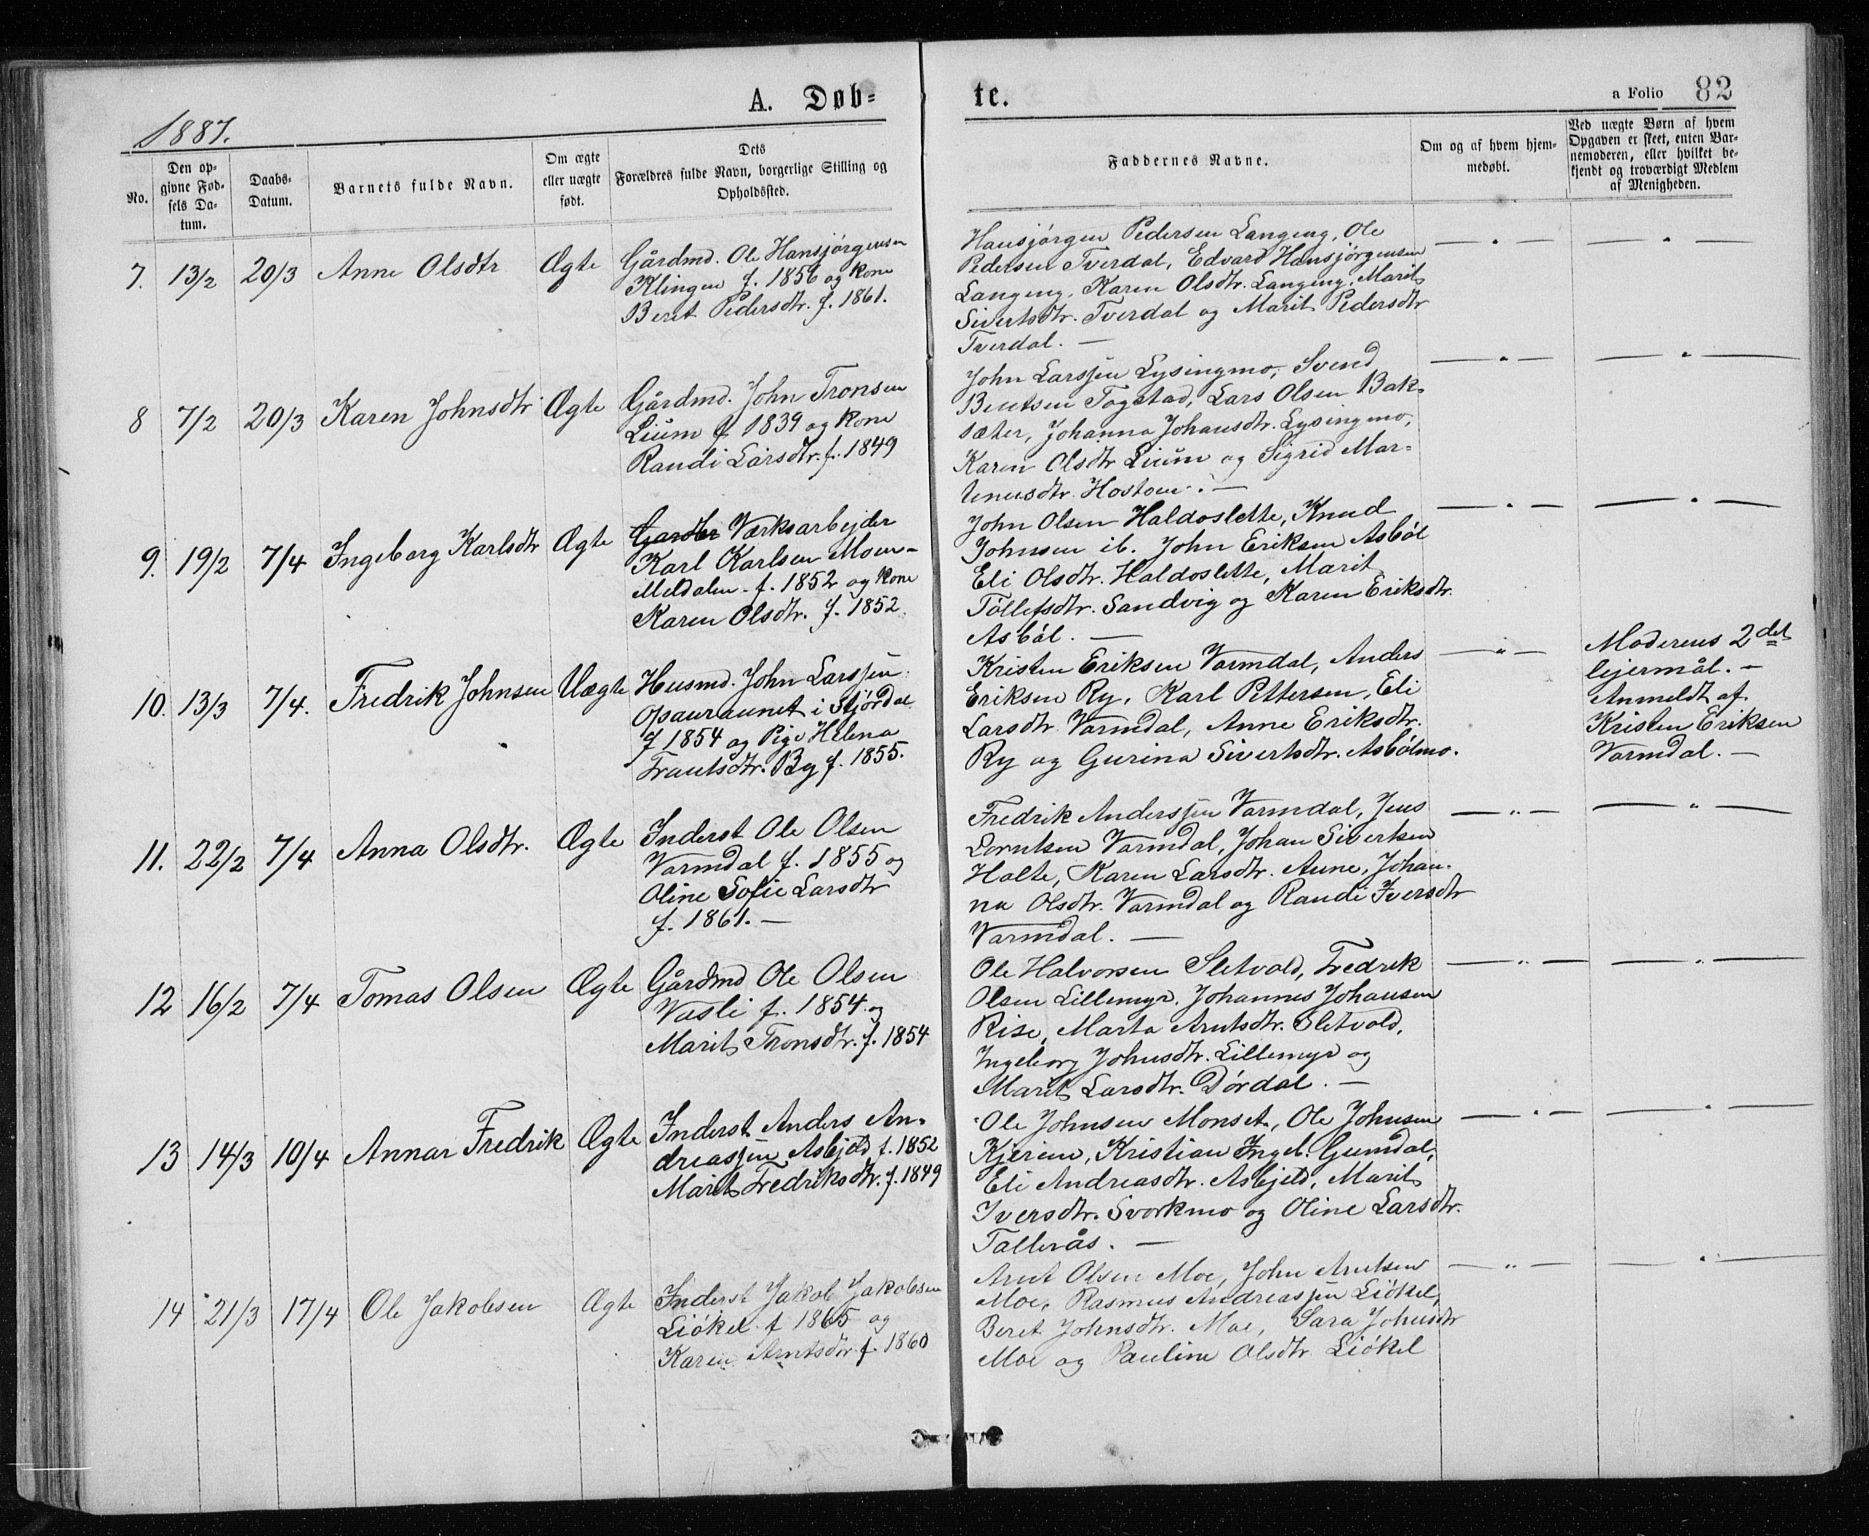 A. Døb-
te.
a Folio 82
1887.
No.
Den op-
givne Fød-
sels Da-
tum.
Daabs-
Datum.
Barnets fulde Navn.
Om ægte
eller uægte
født.
Dets
Forældres fulde Navn, borgerlige Stilling og
Opholdssted.
Faddernes Navne.
Om og af hvem hjem-
medøbt.
Ved uægte Børn af hvem
Opgaven er skeet, enten Bar-
nemoderen, eller hvilket be-
kjendt og troværdigt Medlem
af Menigheden.
7. 13/2 20/3 Anne Olsdtr Ægte
Gårdmd. Ole Hansjørgensen
Klingen f. 1856 og kone
Beret Pedersdtr. f. 1861.
Hansjørgen Pedersen Langeng, Ole
Pedersen Tverdal, Edvard Hansjørgensen
Langeng, Karen Olsdtr. Langeng, Marit
Sivertsdtr. Tverdal og Marit Pedersdtr
Tverdal. —
— " —
— " —
8 7/2 20/3 Karen Johnsdtr Ægte
Gårdmd. John Tronsen
Lium f. 1839 og kone
Randi Larsdtr. f. 1849
John Larssen Lysingmo, Svend
Bentsen Togstad, Lars Olsen Bak-
sæter, Johanna Johansdtr. Lysingmo,
Karen Olsdtr Lium og Sigrid Mar-
tinusdtr. Hoston. —
— " —
— " —
9. 19/2 7/4 Ingeborg Karlsdtr Ægte
Værksarbejder
Karl Karlsen Moen-
Meldalen f. 1852 og kone
Karen Olsdtr. f. 1852.
John Olsen Haldoslette, Knud
Johnsen ib. John Eriksen Asbøl
Eli Olsdtr. Haldoslette, Marit
Tollefsdtr. Sandvig og Karen Eriksdtr.
Asbøl. —
— " —
— " —
10. 13/3 7/4. Fredrik Johnsen Uægte
Husmd. John Larssen
Opauraunet i Stjørdal
f 1854 og Pige Helena
Frantsdtr. By f. 1855.
Kristen Eriksen Varmdal, Anders
Eriksen Ry, Karl Pettersen, Eli
Larsdtr. Varmdal, Anne Eriksdtr.
Ry og Gurina Sivertsdtr. Asbølmo.
— " —
Moderens 2det
lejermål. —
Anmeldt af
Kristen Eriksen
Varmdal. —
11. 22/2 7/4 Anna Olsdtr. Ægte
Inderst Ole Olsen
Varmdal f. 1855 og
Oline Sofie Larsdtr
f. 1861. —
Fredrik Anderssen Varmdal, Jens
Lorntsen Varmdal, Johan Sivertsen
Holte, Karen Larsdtr. Aune, Johan-
na Olsdtr. Varmdal og Randi Iversdtr
Varmdal. —
— " —
— " —
12 16/2 7/4 Tomas Olsen Ægte
Gårdmd Ole Olsen
Vasli f. 1854 og
Marit Tronsdtr. f. 1854
Ole Halvorsen Sletvold, Fredrik
Olsen Lillemyr, Johannes Johansen
Rise, Marta Arntsdtr. Sletvold,
Ingeborg Johnsdtr. Lillemyr og
Marit Larsdtr. Dørdal. —
— " —
— " —
13 14/3 10/4 Annar Fredrik Ægte
Inderst Anders An-
dreassen Asbjeld f. 1852
Marit Fredriksdtr. f. 1849
Ole Johnsen Monset, Ole Johnsen
Kjerem, Kristian Ingel. Gumdal,
Eli Andreasdtr. Asbjeld, Marit
Iversdtr. Svorkmo og Oline Larsdtr.
Tallerås. —
— " —
— " —
14 21/3 17/4 Ole Jakobsen Ægte
Inderst Jakob Jakobsen
Liøkel f 1865 og
Karen Arntsdtr f. 1860
Arnt Olsen Moe, John Arntsen
Moe, Rasmus Andreassen Liøkel,
Beret Johnsdtr. Moe, Sara Johnsdtr
Moe og Pauline Olsdtr. Liøkel
— " —
— " —